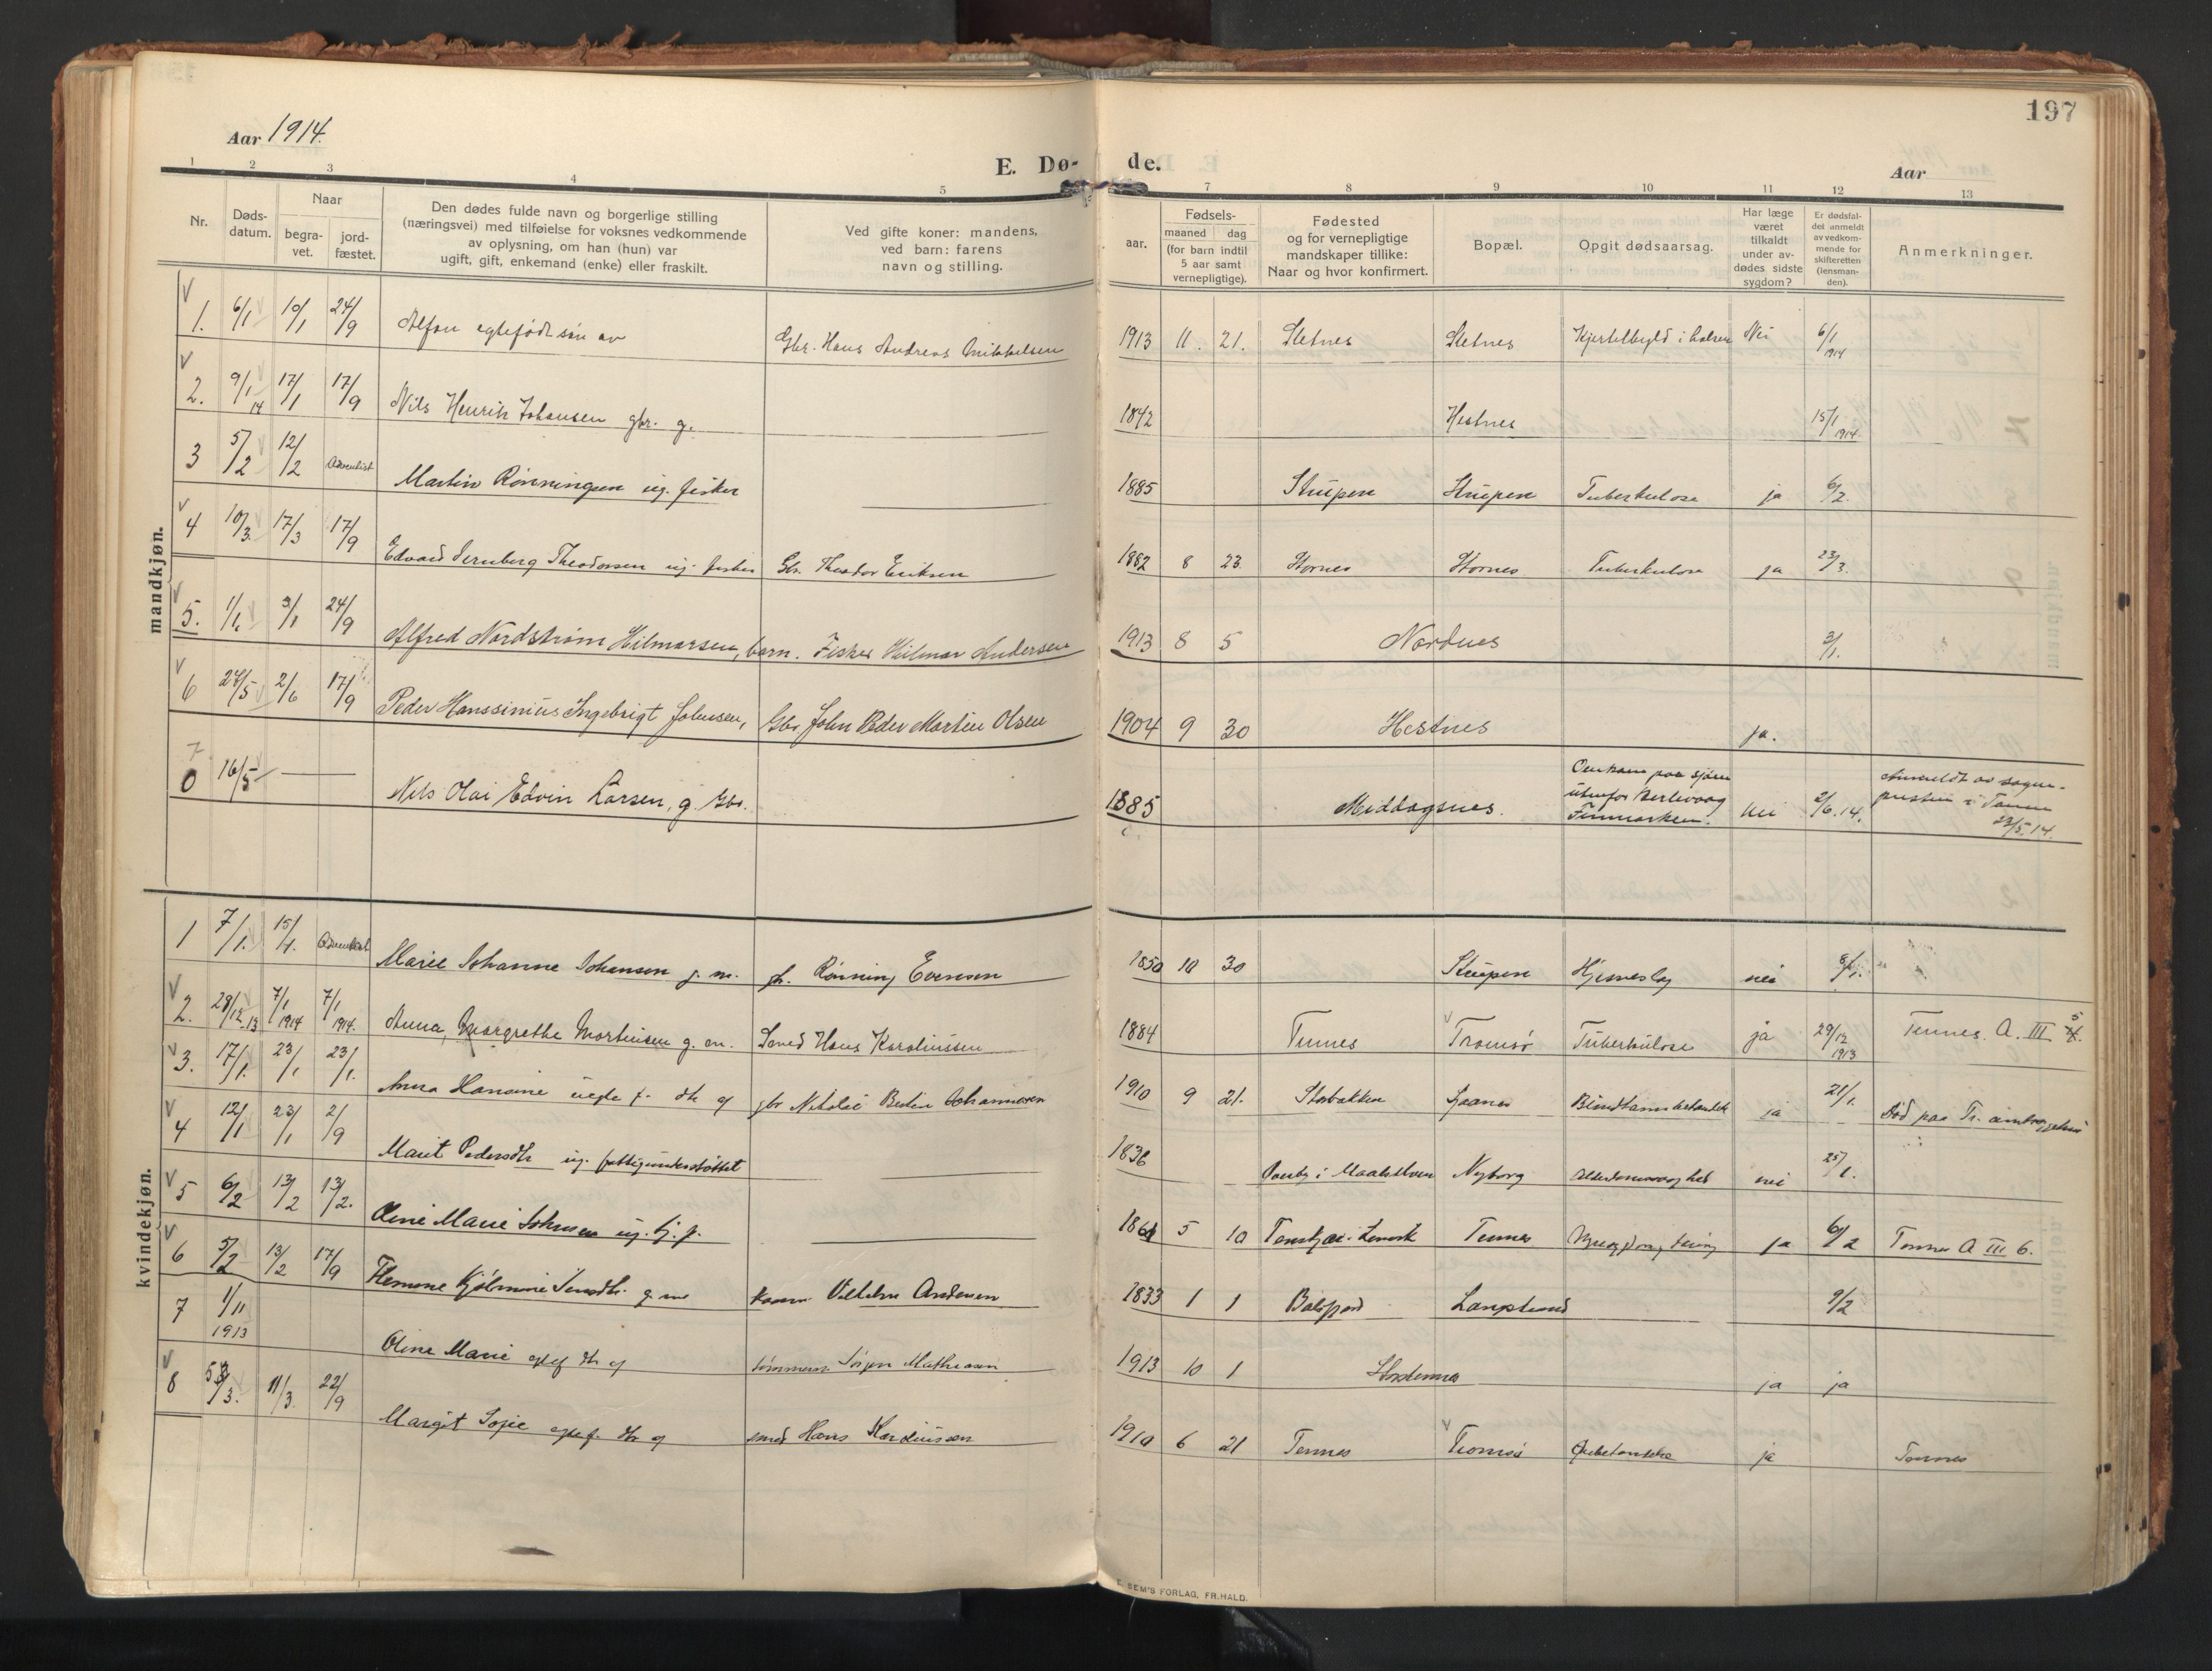 197
Aar 1914.
E. Dø- de.
Aar
1 2 3 4 5 7 8 9 10 11 12 13
Nr.
Døds-
datum.
Naar
begra-
vet.
jord-
fæstet.
Den dødes fulde navn og borgerlige stilling
(næringsvei) med tilføielse for voksnes vedkommende
av oplysning, om han (hun) var
ugift, gift, enkemand (enke) eller fraskilt.
Ved gifte koner: mandens,
ved barn: farens
navn og stilling.
aar.
Fødsels-
maaned dag
(for barn indtil
5 aar samt
vernepligtige).
Fødested
og for vernepligtige
mandskaper tillike:
Naar og hvor konfirmert.
Bopæl.
Opgit dødsaarsag.
Har læge
været
tilkaldt
under av-
dødes sidste
sygdom?
Er dødsfal-
det anmeldt
av vedkom-
mende for
skifteretten
(lensman-
den).
Anmerkninger.
mandkjøn.
1. 6/1 10/1 24/9 Alfon egtefødt søn av Gbr. Hans Andreas Mikkelsen 1913 11. 21. Sletnes Sletnes Kjertelbyld i halsen Nei 6/1 1914
2. 9/1 14 17/1 17/9 Nils Henrik Johansen gbr. g. 1842 Hestnes 15/1 1914.
3 5/2 12/2 Adventist Martin Rønningen ug. fisker 1885 Stupen Stupen Tuberkulose ja 6/2.
4 10/3. 17/3 17/9 Edvard Sernberg Theodorsen ug. fisker Gbr. Theodor Eriksen 1882 8 23. Stornes Stornes Tuberkulose ja 23/3.
5. 1/1. 3/1 24/9 Alfred Nordstrøm Hilmarsen, barn. Fisker Hilmar Andersen 1913 8 5 Nordnes 3/1.
6 24/5 2/6 17/9 Peder Hanssinius Ingebrigt Johnsen, Gbr. John Peder Martin Olsen 1904 9 30 Hestnes ja.
7
0 16/5 Nils Olai Edvin Larsen, g. Gbr. 1885 Middagsnes. Omkom paa sjøen
utenfor Berlevaag
Finmarken. nei 2/6.14. Anmeldt av sogne-
presten i Tanen
23/5.14.
kvindekjøn.
1 7/1. 15/1. Adventist Marie Johanne Johansen g. m. gb. Rønning Evensen 1850 10 30 Stupen Hjerneslag nei 8/1.
2. 28/12 13 7/1 1914 7/1 1914. Anna Margrethe Mortensen g. m. Smed Hans Karoliussen 1884 Tennes Tromsø Tuberkulose ja 29/12 1913 Tennes. A. III 5.
3. 17/1. 23/1 23/1. Anna Hansine uegte f. dtr af gbr Nikolai Berlin Johannesen 1910 9 21. Storbakken ja 21/1. Død paa Tr.
4 12/1 23/1 2/9 Marit Pedersdtr ug. fattigunderstøttet 1836 i Maalselven Nyborg Alderdomssvaghet nei 25/1.
5 6/2 13/2 13/2. Oline Marie Johnsen ug. tj. p. 1861 5 10 Tennes ja 6/2 Tennes A III 6.
6 5/2 13/2 17/9 g. m. Andersen 1833 1 1 Balsfjord 9/2
7 1/11 1913 Oline Marie egtef dtr af Tømmerm. Jørgen Mathiasen 1913 10 1 ja ja
8 5/3. 11/3. 22/9 Margit Sofie egtef. dtr af smed Hans Karoliussen 1910 6 21 Tennes Tromsø ja Tennes
E. SEM'S FORLAG, FR.HALD.